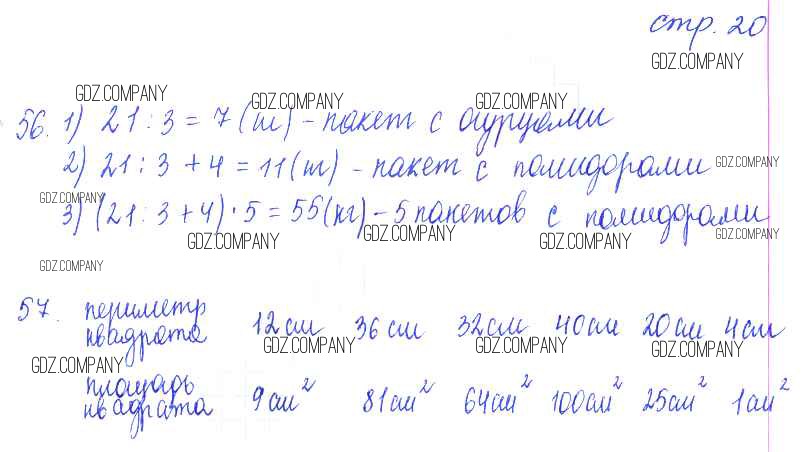 стр. 20
GDZ.COMPANY
GDZ.COMPANY GDZ.COMPANY GDZ.COMPANY
56. 1) 21 : 3 = 7 (кг) – пакет с огурцами
2) 21 : 3 + 4 = 11 (кг) – пакет с помидорами GDZ.COMPANY
GDZ.COMPANY
3) (21 : 3 + 4) · 5 = 55 (кг) – 5 пакетов с помидорами
GDZ.COMPANY GDZ.COMPANY GDZ.COMPANY GDZ.COMPANY
GDZ.COMPANY
57. периметр
квадрата 12 см 36 см 32 см 40 см 20 см 4 см
GDZ.COMPANY GDZ.COMPANY GDZ.COMPANY
GDZ.COMPANY
площадь
квадрата 9 см² 81 см² 64 см² 100 см² 25 см² 1 см²